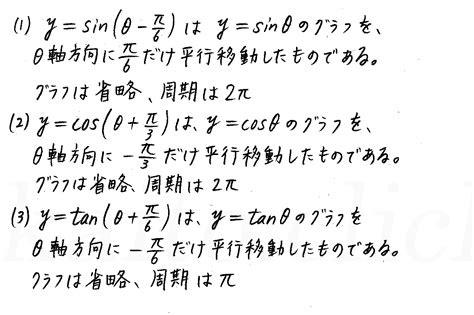 (1) y=sin(θ-π/6) は y=sinθのグラフを、
θ軸方向にπ/6だけ平行移動したものである。
グラフは省略、周期は2π
(2) y=cos(θ+π/3)は、y=cosθのグラフを、
θ軸方向に-π/3だけ平行移動したものである。
グラフは省略、周期は2π
(3) y=tan(θ+π/6)は、y=tanθのグラフを
θ軸方向に-π/6だけ平行移動したものである。
グラフは省略、周期はπ